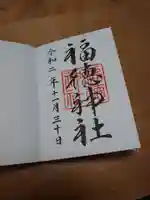 福徳神社
令和二年十一月三十日